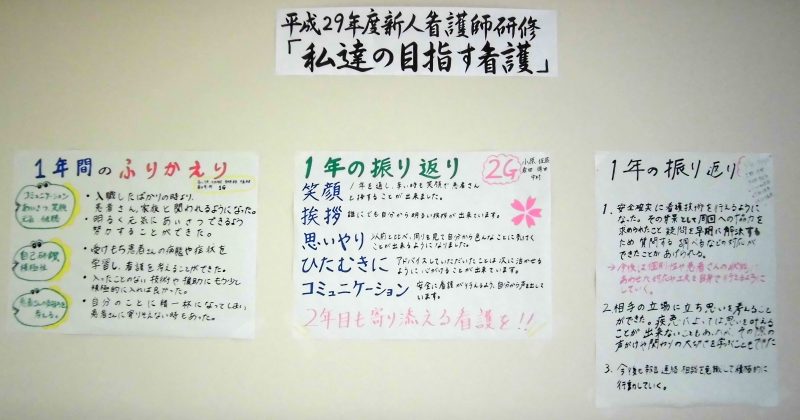 平成29年度新人看護師研修
「私達の目指す看護」
1年間のふりかえり
コミュニケーション
あいさつ 笑顔
・入職したばかりの時より、
患者さん、家族と関われるようになった。
・明るく元気にあいさつできるよう
努力することができた。
自己研鑽
積極性
・受けもち患者さんの病態や症状を
学習し、看護を考えることができた。
・入ったことのない技術や援助にもう少し
積極的に入れば良かった。
患者さんの気持ちを
考える。
・自分のことに精一杯になってしまい、
患者さんに寄りそえない時もあった。
1年の振り返り
2G
笑顔 1年を通し、辛い時も笑顔で患者さん
と接することが出来ました。
挨拶 誰にでも自分から明るい挨拶が出来ています。
思いやり 以前と比べ、周りを見て自分から色んなことに気づく
ことが出来るようになりました。
ひたむきに アドバイスしていただいたことは次に活かせる
ように心がけることが出来ています。
コミュニケーション 安全に看護が行えるよう、自分から声を出して
います。
2年目も寄り添える看護を!!
1年の振り返り
1. 安全確実に看護技術を行えるように
なった。その背景として周囲への協力を
求められたこと 疑問を早期に解決する
ため 質問する 調べるなどの対応が
できたことがあげられる。
→今後は個別性や患者さんの状態に
あわせて
していく。
2. 相手の立場に立ち思いを考えること
ができた。疾患によっては思いを叶える
ことが 出来ないこともあったが、その際の
声かけや関わりの大切さを学ぶこともできた
3. 今後も報告 連絡 相談を意識して積極的に
行動していく。